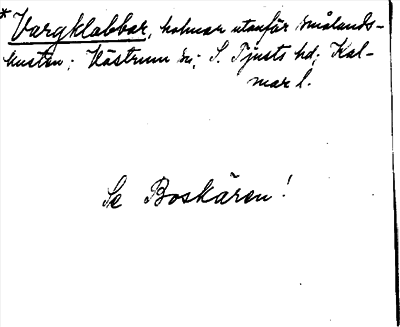 * Vargklabbar, holmar utanför Smålands-
kusten; Västrum sn; S. Tjusts hd; Kal-
mar l.
Se Boskären!